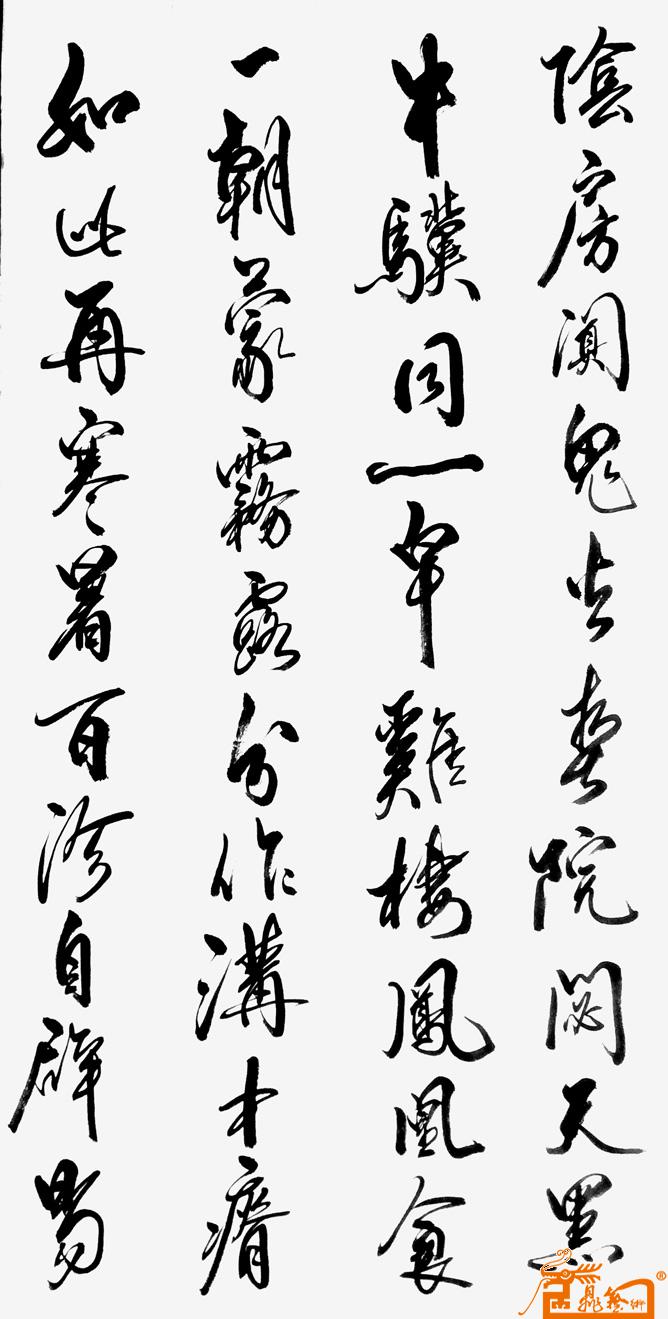 陰房闃鬼火春院閟天黑
牛驥同一皁雞棲鳳凰食
一朝蒙霧露分作溝中瘠
如此再寒暑百沴自辟易